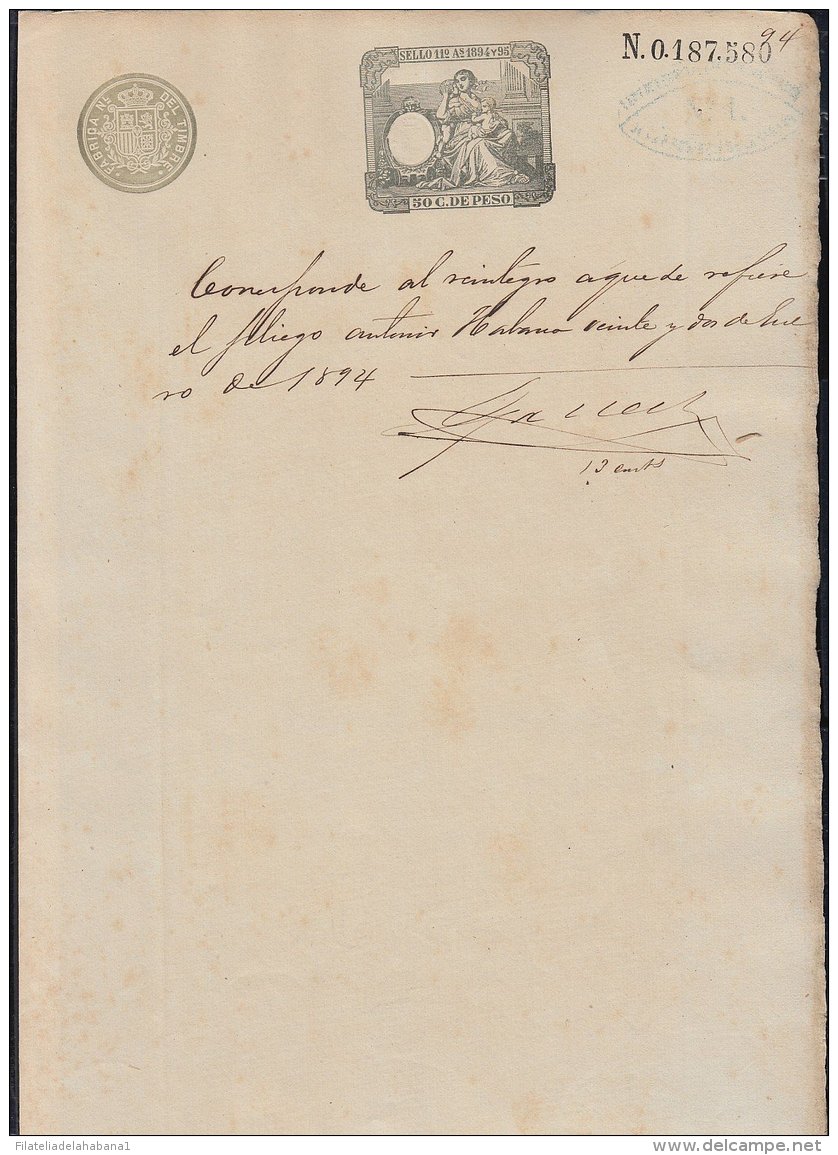 94
N.0.187.580
SELLO 11º AS 1894 Y 95
FÁBRICA Nal DEL TIMBRE
50 C. DE PESO
Corresponde al reintegro a que se refiere
el pliego anterior Habana veinte y dos de Ene
ro de 1894
13 cents
Filateliadelahabana1
delcampe.net